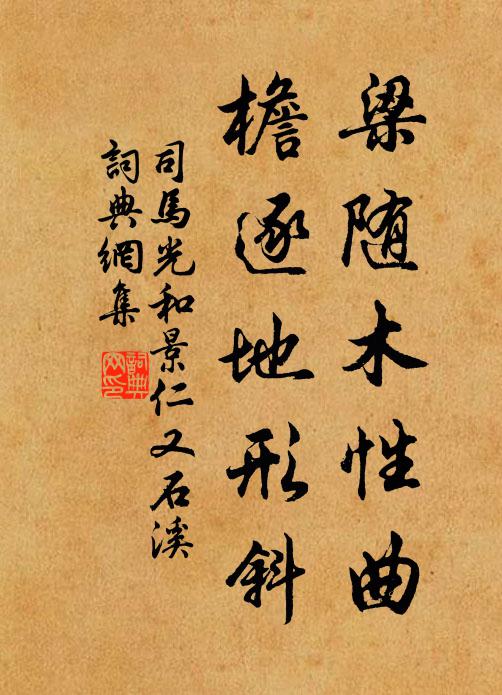 梁随木性曲
檐逐地形斜
司馬光和景仁又石溪
詞典網集
詞典網印